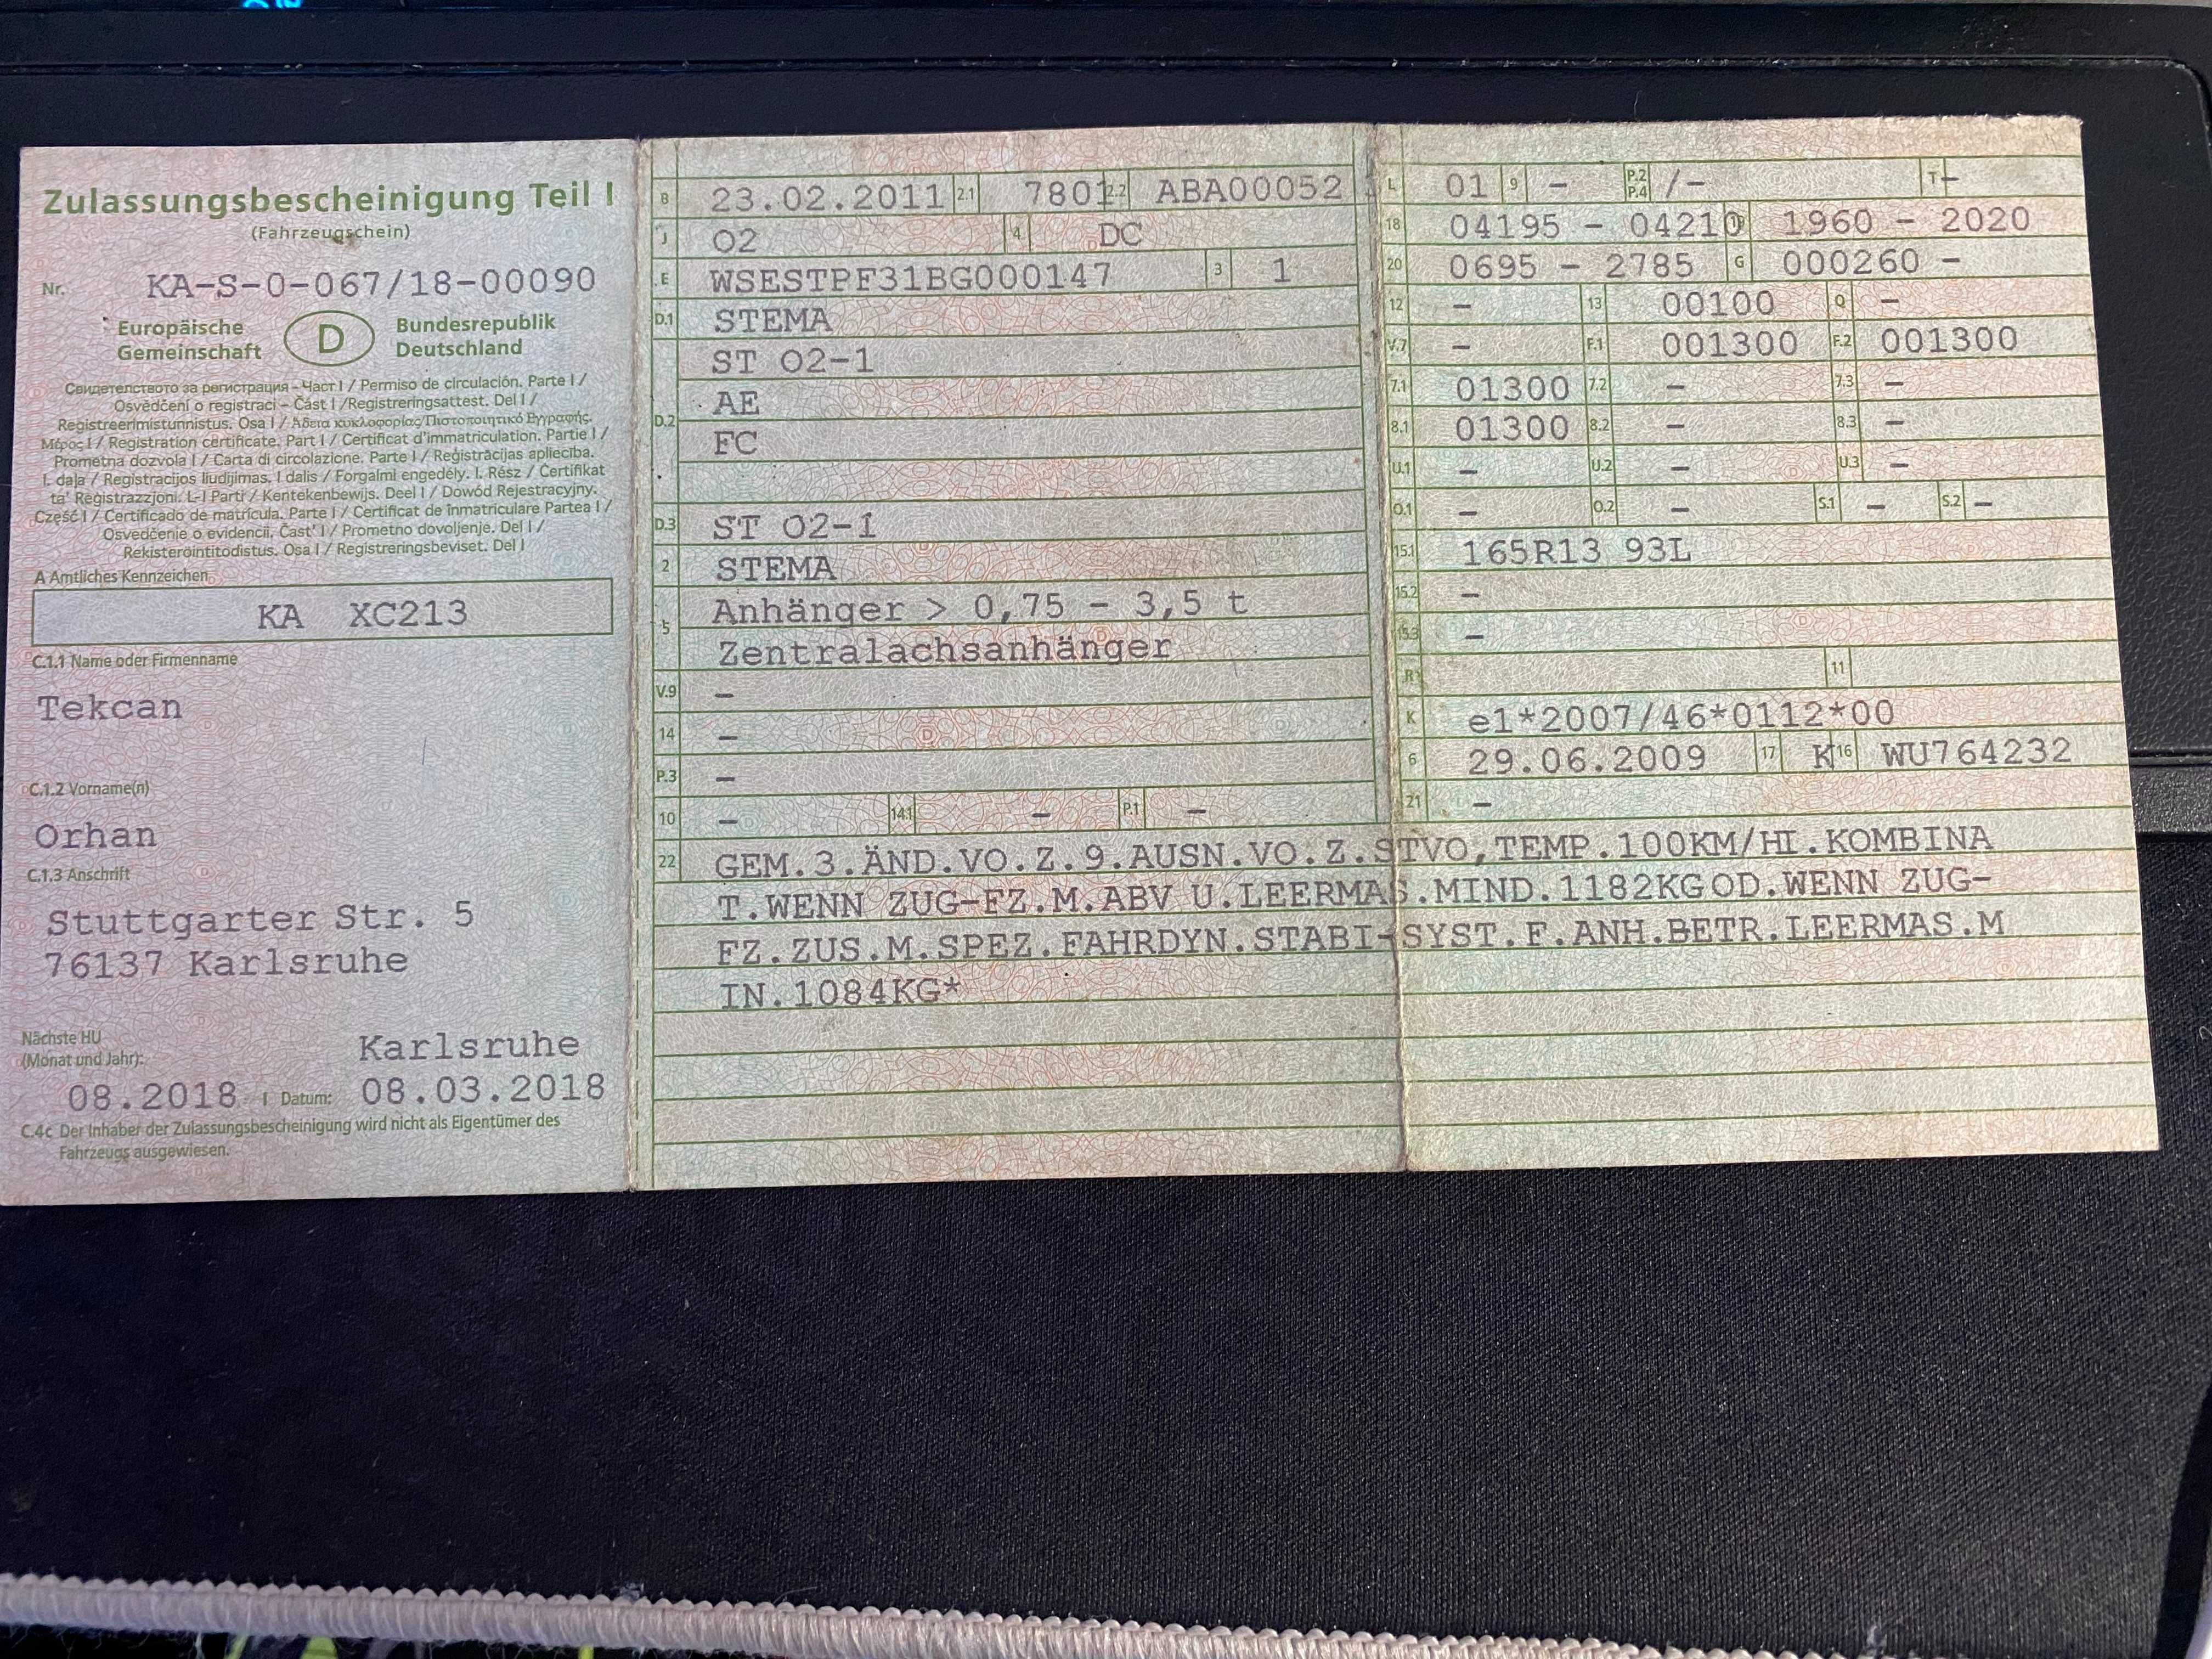 Zulassungsbescheinigung Teil I
(Fahrzeugschein)
Nr. KA-S-0-067/18-00090
Europäische Gemeinschaft D Bundesrepublik Deutschland
Свидетелството за регистрация - Част I / Permiso de circulación. Parte I /
Osvědčení o registraci – Část I /Registreringsattest. Del I /
Registreerimistunnistus. Osa I / Άδεια κυκλοφορίας/Πιστοποιητικό Εγγραφής.
Μέρος I / Registration certificate. Part I / Certificat d'immatriculation. Partie I /
Prometna dozvola I / Carta di circolazione. Parte I / Reģistrācijas apliecība.
I. daļa / Registracijos liudijimas. I dalis / Forgalmi engedély. I. Rész / Ċertifikat
ta' Reġistrazzjoni. L-I Parti / Kentekenbewijs. Deel I / Dowód Rejestracyjny.
Część I / Certificado de matrícula. Parte I / Certificat de înmatriculare Partea I /
Osvedčenie o evidencii. Časť I / Prometno dovoljenje. Del I /
Rekisteröintitodistus. Osa I / Registreringsbeviset. Del I
A Amtliches Kennzeichen
KA XC213
C.1.1 Name oder Firmenname
Tekcan
C.1.2 Vorname(n)
Orhan
C.1.3 Anschrift
Stuttgarter Str. 5
76137 Karlsruhe
Nächste HU
(Monat und Jahr):
Karlsruhe
08.2018 I Datum: 08.03.2018
C.4c Der Inhaber der Zulassungsbescheinigung wird nicht als Eigentümer des
Fahrzeugs ausgewiesen.
B 23.02.2011 2.1 7801 2.2 ABA00052
J O2 4 DC
E WSESTPF31BG000147 3 1
D.1 STEMA
ST O2-1
D.2 AE
FC
D.3 ST O2-1
2 STEMA
5 Anhänger > 0,75 - 3,5 t
Zentralachsanhänger
V.9 -
14 -
P.3 -
10 - 14.1 - P.1 -
L 01 9 - P.2 P.4 /- T -
18 04195 - 04210 1960 - 2020
20 0695 - 2785 G 000260 -
12 - 13 00100 Q -
V.7 - F.1 001300 F.2 001300
7.1 01300 7.2 - 7.3 -
8.1 01300 8.2 - 8.3 -
U.1 - U.2 - U.3 -
O.1 - O.2 - S.1 - S.2 -
15.1 165R13 93L
15.2 -
15.3 -
R 11
K e1*2007/46*0112*00
6 29.06.2009 17 K 16 WU764232
21 -
22 GEM.3.ÄND.VO.Z.9.AUSN.VO.Z.STVO,TEMP.100KM/HI.KOMBINA
T.WENN ZUG-FZ.M.ABV U.LEERMAS.MIND.1182KGOD.WENN ZUG-
FZ.ZUS.M.SPEZ.FAHRDYN.STABI-SYST.F.ANH.BETR.LEERMAS.M
IN.1084KG*